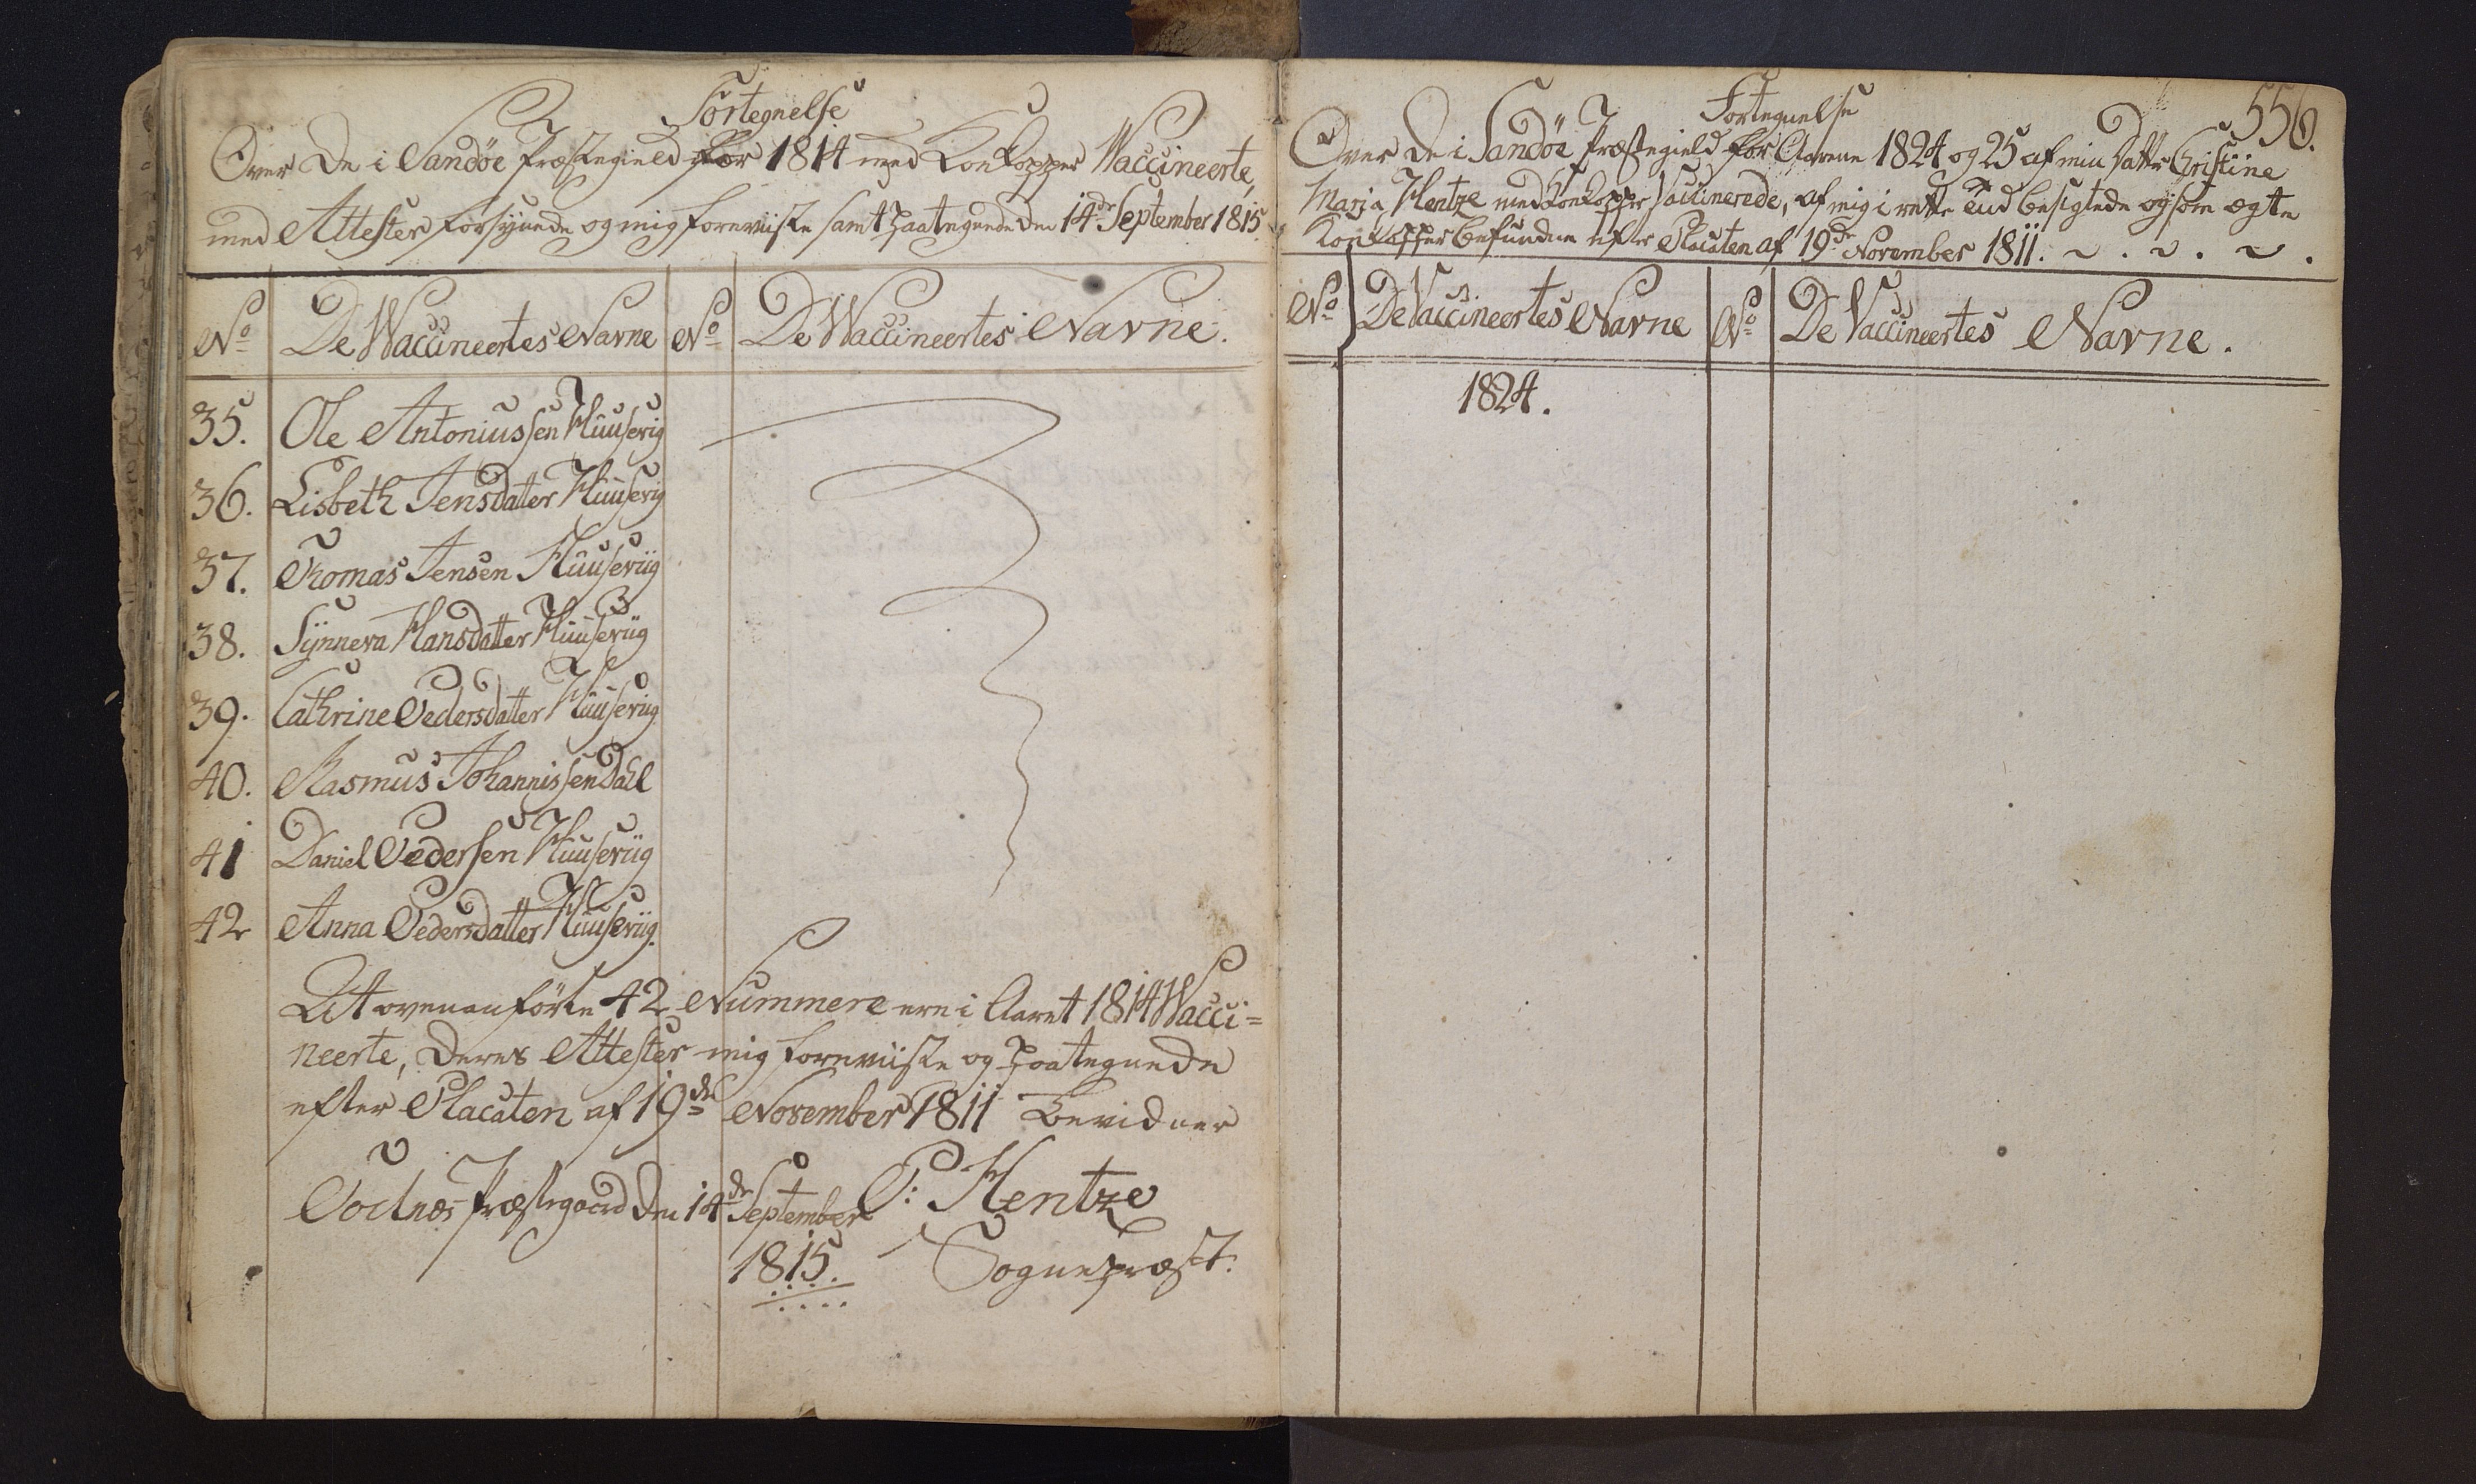 Fortegnelse
Over De i Sandöe Præstegield for 1814 med Koekopper Waccineerte,
med Attester forsynede og mig foreviiste samt paategnede den 14de September 1815
No De Waccineertes Navne No De Waccineertes Navne.
35. Ole Antoniussen Huuseviig
36. Lisbeth Jensdatter Huuseviig
37. Thomas Jensen Huuseviig
38. Synneva Hansdatter Huuseviig
39. Cathrine Pedersdatter Huuseviig
40. Rasmus Johannissen Dahl
41 Daniel Pedersen Huuseviig
42 Anna Pedersdatter Huuseviig.
At ovenanførte 42 Nummere ere i Aaret 1814 Wacci=
neerte, Deres Attester mig foreviiste og paategnede
efter Placaten af 19de November 1811 bevidner
Præstegaard den 14de September P: Hentze
1815. Sognepræst.
556.
Fortegnelse
Over De i Sandöe Præstegield for Aarene 1824 og 25 af min Datter Christine
Maria Hentze med Koekopper Vaccinerede, af mig i rette Tiid besigtede og som ægte
Koekopper befundne efter Placaten af 19de November 1811.
No De Vaccineertes Navne No De Vaccineertes Navne.
1824.